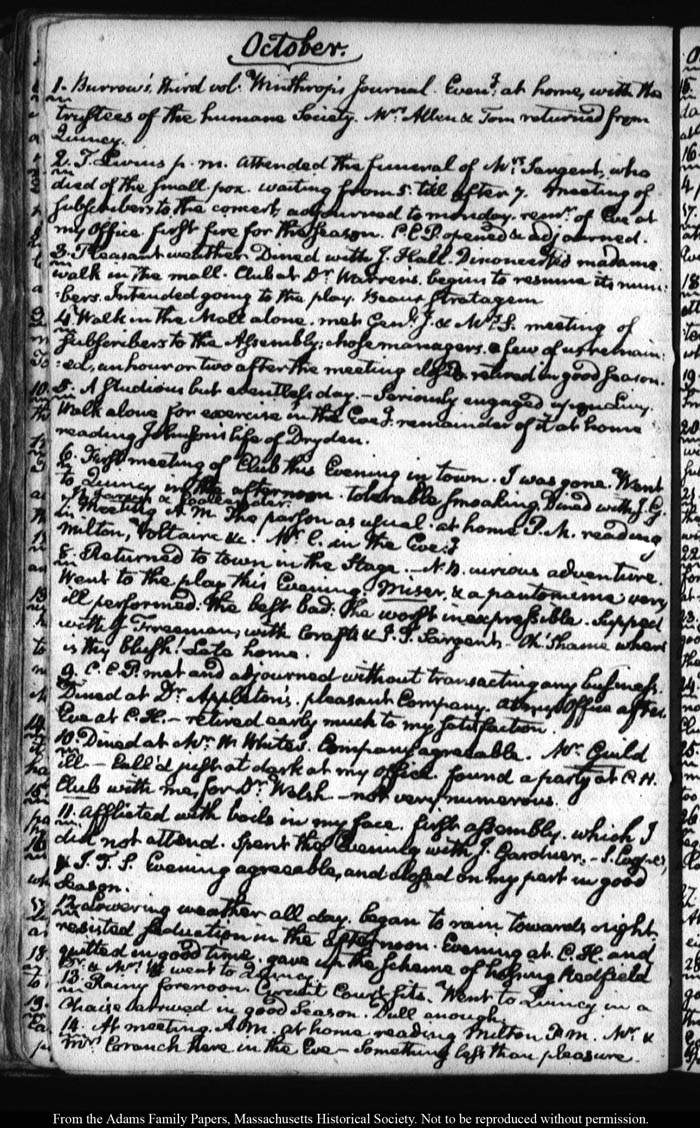 October.
1. Burrow's. third vol. Winthrop's Journal. Eveng. at home, with the
trustees of the humane Society. Mrs. Allen & Tom returned from
Quincy.
2. T. Lewis p. m. Attended the funeral of Mrs. Sargent, who
died of the small pox. waiting from 5. till after 7. Meeting of
subscribers to the concert, adjourned to monday. remr. of Eve at
my Office first fire for the Season. C.C.P. opened & adjourned.
3. Pleasant weather. Dined with J. Hall. Disconcerted madame
walk in the mall. Club at Dr. Warren's. begins to resume its num-
:bers. Intended going to the play. Beaux Stratagem
4. Walk in the Mall alone. met Genl. J. & Mrs. S. meeting of
subscribers to the Assembly: chose managers. a few of us remain:
:ed, an hour or two after the meeting closed. retired in good season.
5. A studious but eventless day. — Seriously engaged
Walk alone for exercise in the Eveg. remainder of it at home
reading Johnson's life of Dryden.
6. First meeting of Club this Evening in town. I was gone. Went
to Quincy in the afternoon. tolerable smoaking. Dined with J. G.
7. Meeting A. M. The parson as usual. at home P. M. reading
Milton, Voltaire &c. Mr. C. in the Eveg.
8. Returned to town in the Stage. — N.B. curious adventure.
Went to the play this Evening. Miser, & a pantomime very
ill performed. The best bad: the worst inexpressible. Supped
with J. Freeman, with Crafts & J. T. Sargent — Oh! Shame where
is thy blush. Late home.
9. C. C. P. met and adjourned without transacting any business.
Dined at Dr. Appleton's. pleasant Company. at my Office after.
Eve at C. H. — retired early much to my satisfaction.
10. Dined at Mr. W. White's. Company agreeable. Mr. Guild
ill — Call'd just at dark at my office. found a party at C. H.
Club with me, for Dr. Welsh — not very numerous.
11. Afflicted with boils in my face. first assembly. which I
did not attend. Spent the Evening with J. Gardner. —
& J. T. S. Evening agreeable, and closed on my part in good
Season.
12. Lowering weather all day. began to rain towards night
resisted seduction in the afternoon. Evening at C. H. and
quitted in good time. gave up the scheme of Redfield
Dr. & Mrs. W. went to Quincy.
13. Rainy forenoon. Circuit Court sits. Went to Quincy in a
Chaise arrived in good Season. Dull enough.
14. At meeting A. M. at home reading Milton P. m. Mr. &
Mrs. Cranch here in the Eve — Something less than pleasure.
From the Adams Family Papers, Massachusetts Historical Society. Not to be reproduced without permission.